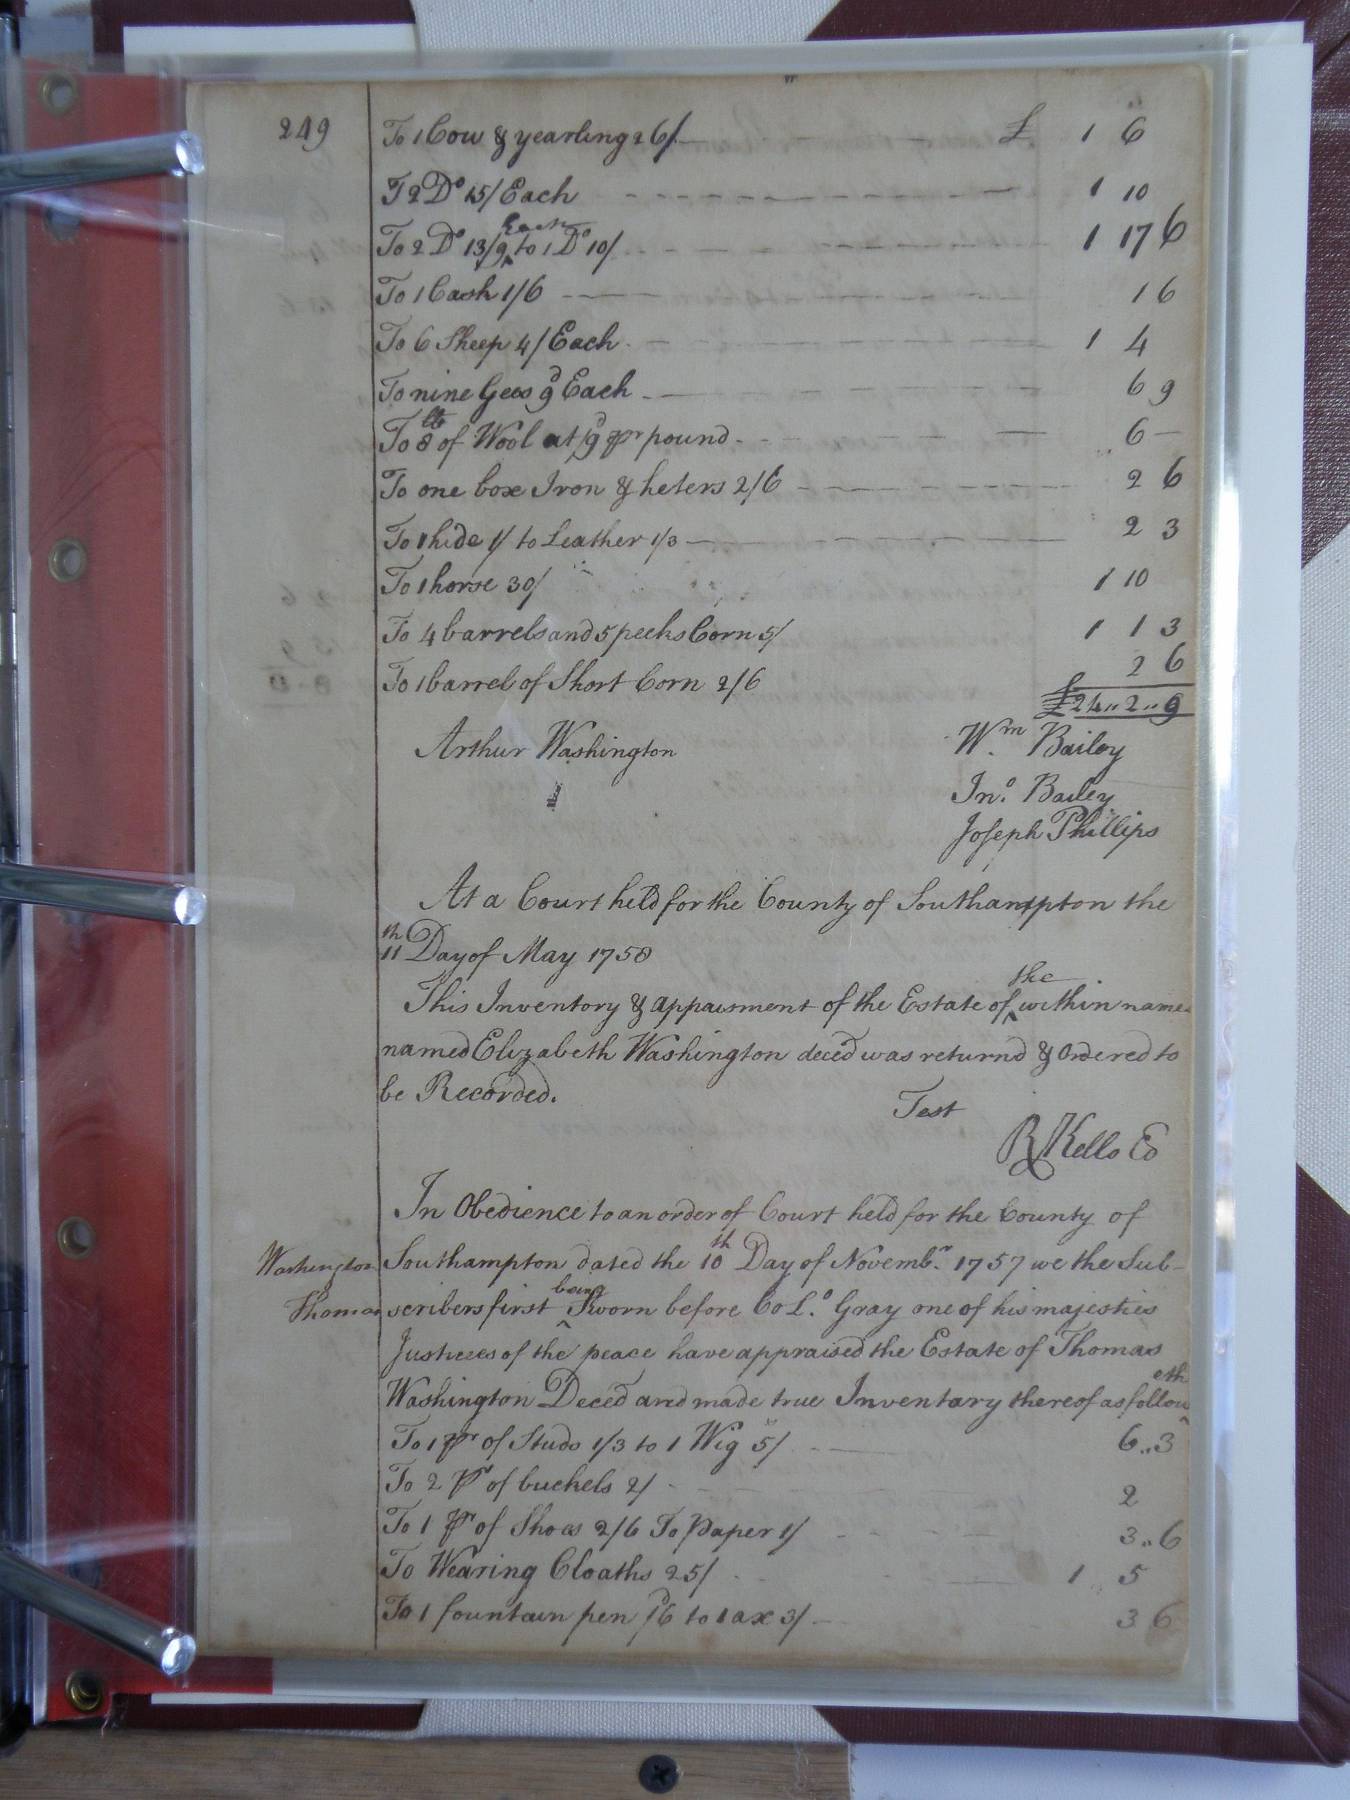 249
To 1 Cow & yearling 26/ £ 1 6
To 2 Do 15/ Each 1 10
Each
To 2 Do 13/9 to 1 Do 10/ 1 17 6
To 1 Cask 1/6 1 6
To 6 Sheep 4/ Each 1 4
To nine Gees 9d Each 6 9
To 8 lb of Wool at 9d pr pound 6 —
To one box Iron & heters 2/6 2 6
To 1 hide 1/ to Leather 1/3 2 3
To 1 horse 30/ 1 10
To 4 barrels and 5 pecks Corn 5/ 1 1 3
To 1 barrel of Short Corn 2/6 2 6
£24..2..9
Arthur Washington Wm Bailey
Jno. Bailey
Joseph Phillips
At a Court held for the County of Southampton the
11th Day of May 1758
the
This Inventory & appaisment of the Estate of ^ within name
named Elizabeth Washington deced was returnd & Ordered to
be Recorded.
Test
R Kello
In Obedience to an order of Court held for the County of
Washington Southampton dated the 10th Day of Novembr. 1757 we the Sub-
being
Thomas scribers first ^ Sworn before Col.o Gray one of his majesties
Justices of the peace have appraised the Estate of Thomas
eth
Washington Deced and made true Inventary thereof as follow
To 1 pr of Studs 1/3 to 1 Wig 5/ 6..3
To 2 pr of buckels 2/ 2
To 1 pr of Shoes 2/6 To Paper 1/ 3..6
To Wearing Cloaths 25/ 1 5
To 1 fountain pen 6d to 1 ax 3/ 3 6